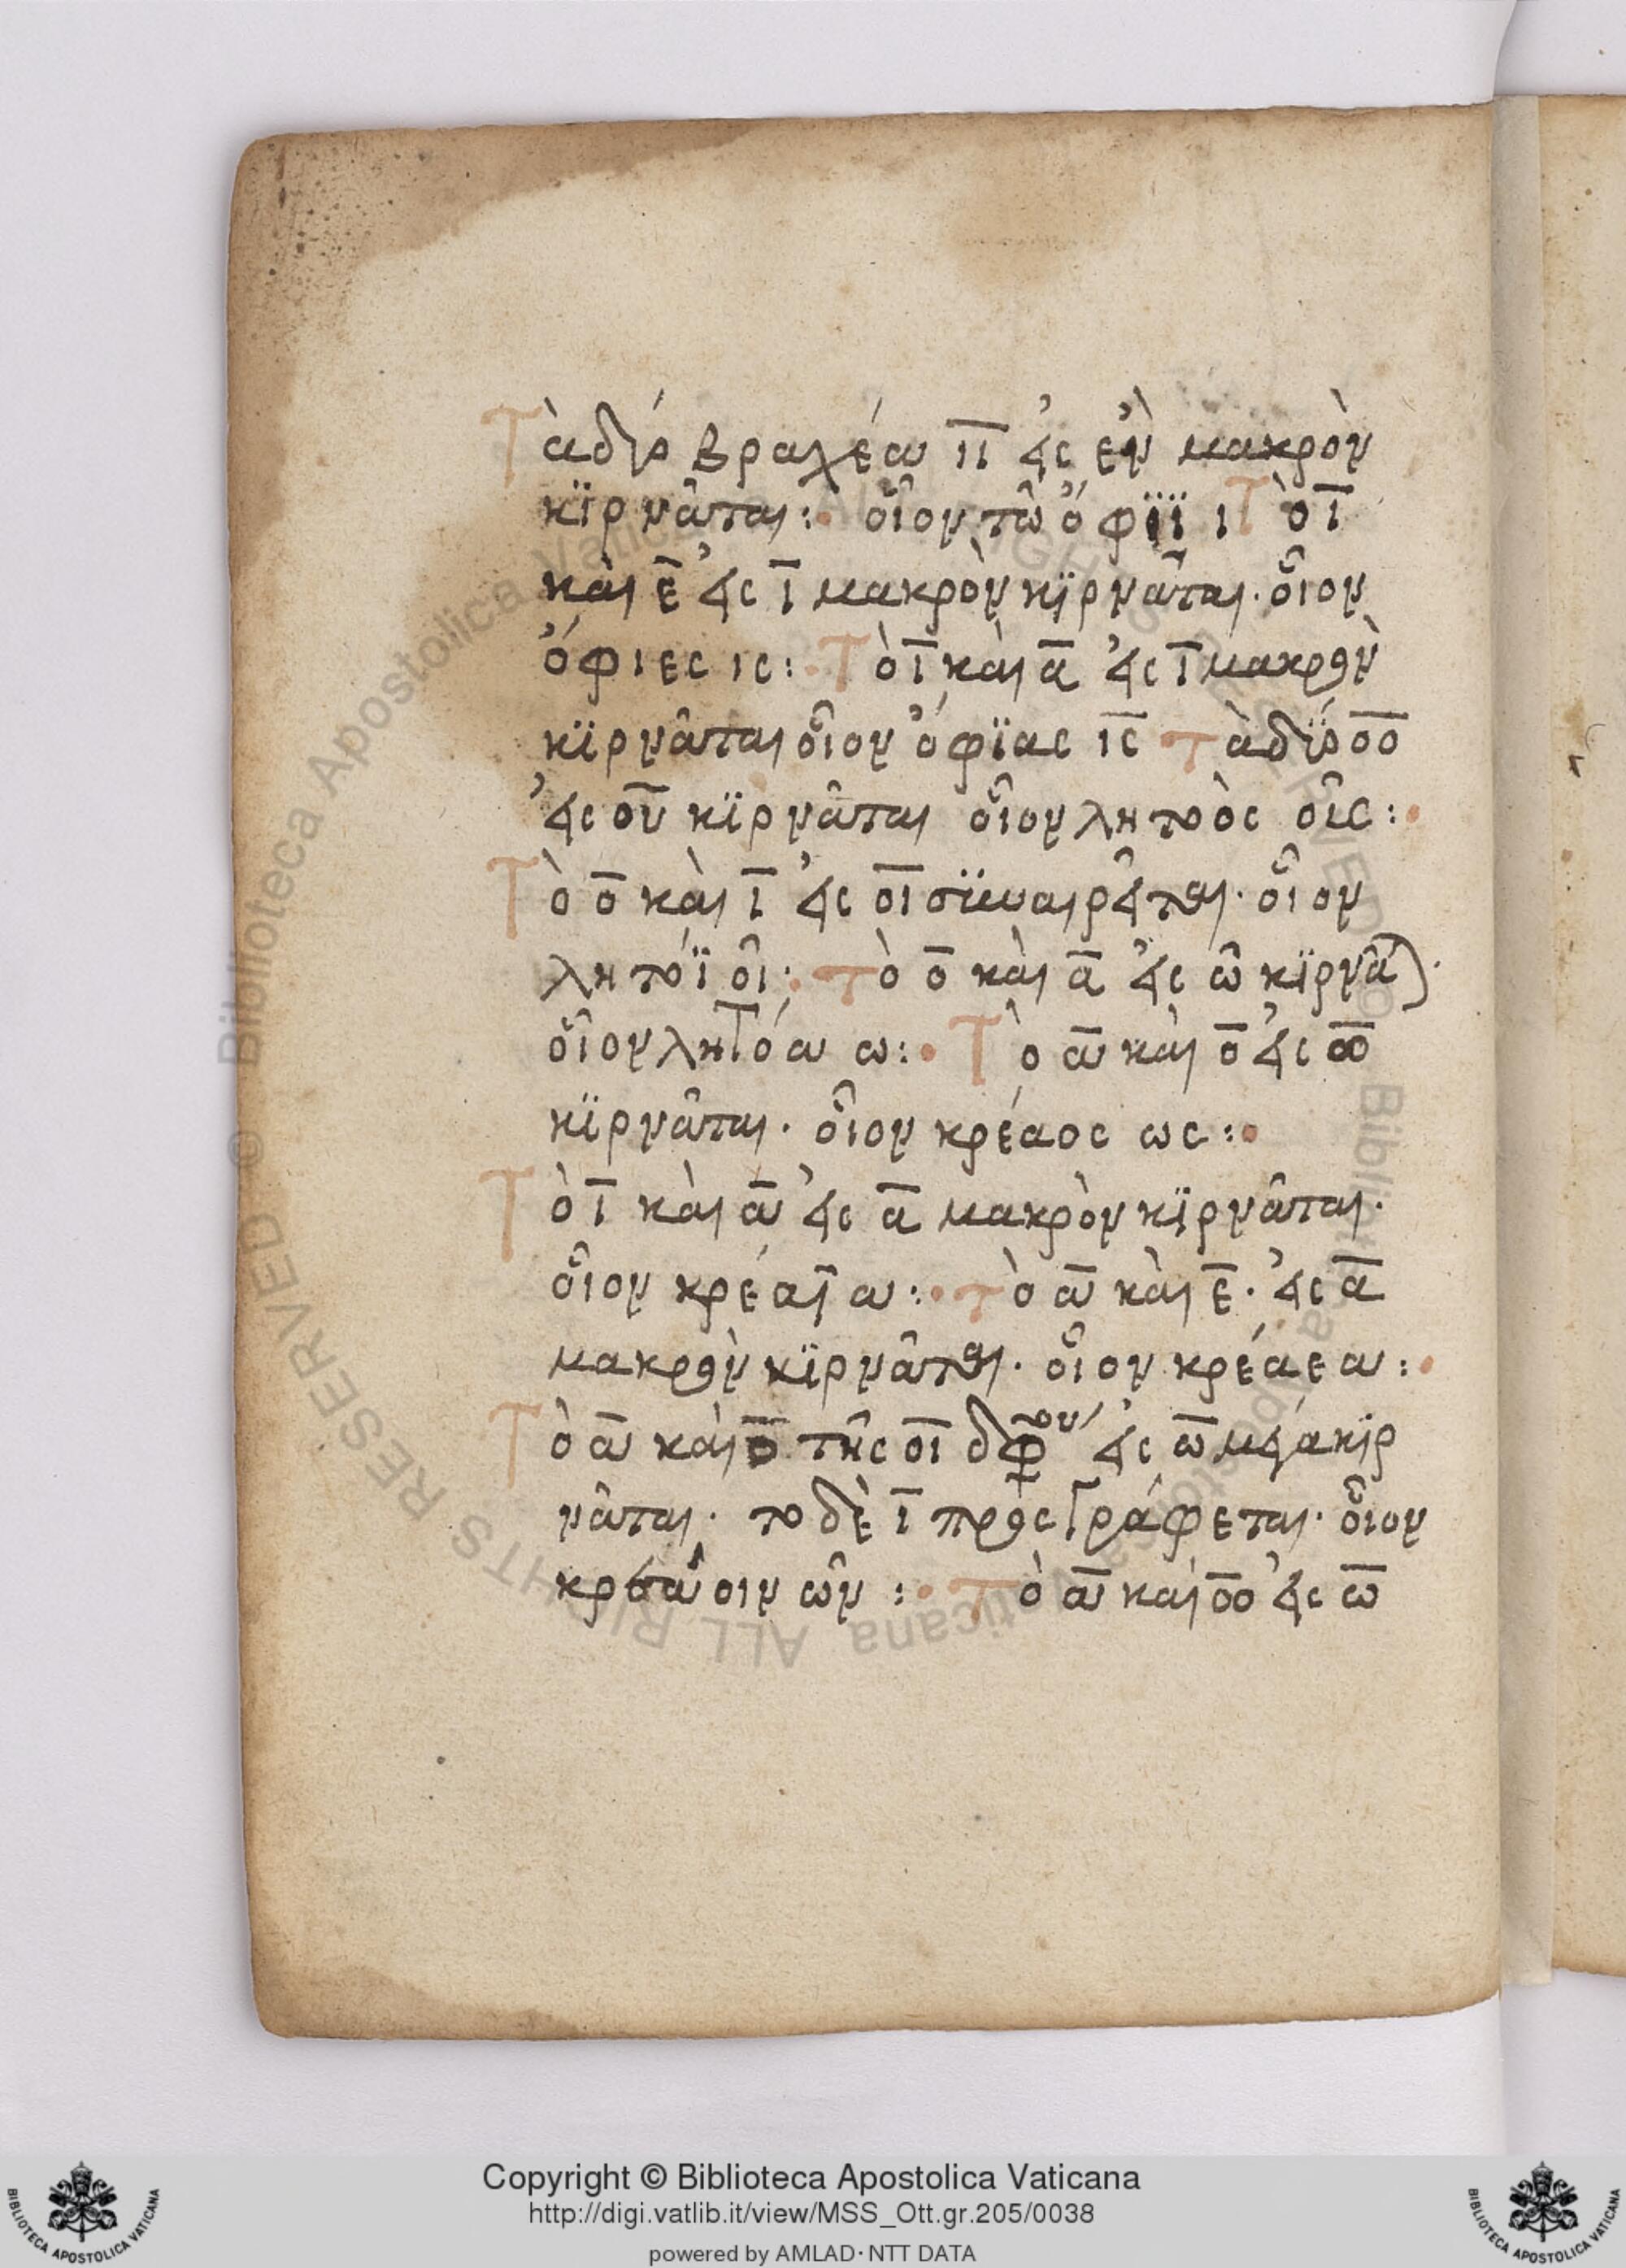 Τὰ δύο βραχέα ῑῑ εἰς ἐν μακρὸν
κϊρνᾶται: οἷον τῶ ὄφϊϊ ι Τὸ ῑ
καὶ ε̄ εἰς ῑ μακρὸν κϊρνᾶται. οἷον
ὄφιες ις: Τὸ ῑ καὶ ᾱ εἰς ῑ μακρὸν
κϊρνᾶται οἷον ὄφϊας ῑς Τὰ δύο ο̄ο̄
εἰς ο̄ῡ κϊρνᾶται οἷον λητοὸς οῖς:
Τὸ ο̄ καὶ ῑ εἰς ο̄ῑ συναιρεῖται. οἷον
λητόϊ οῖ: Τὸ ο̄ καὶ ᾱ εἰς ω̄ κϊρνᾶ).
οἷον λητόα ω: Τὸ ᾱ καὶ ο̄ εἰς ω̄
κϊρνᾶται. οἷον κρέαος ως:
Τὸ ῑ καὶ ᾱ εἰς ᾱ μακρὸν κϊρνᾶται.
οἷον κρέαϊ α: Τὸ ᾱ καὶ ε̄. εἰς ᾱ
μακρὸν κϊρνᾶται. οἷον κρέαε α:
Τὸ ᾱ καὶ ο̄ τῆς ο̄ῑ διφθου εἰς ω̄ μέγα κιρ
νᾶται. το δὲ ῑ προςγράφεται. οἷον
κρεάοιν ῶν: Τὸ ᾱ καὶ ο̄ο̄ εἰς ω̄
Copyright © Biblioteca Apostolica Vaticana
http://digi.vatlib.it/view/MSS_Ott.gr.205/0038
powered by AMLAD·NTT DATA